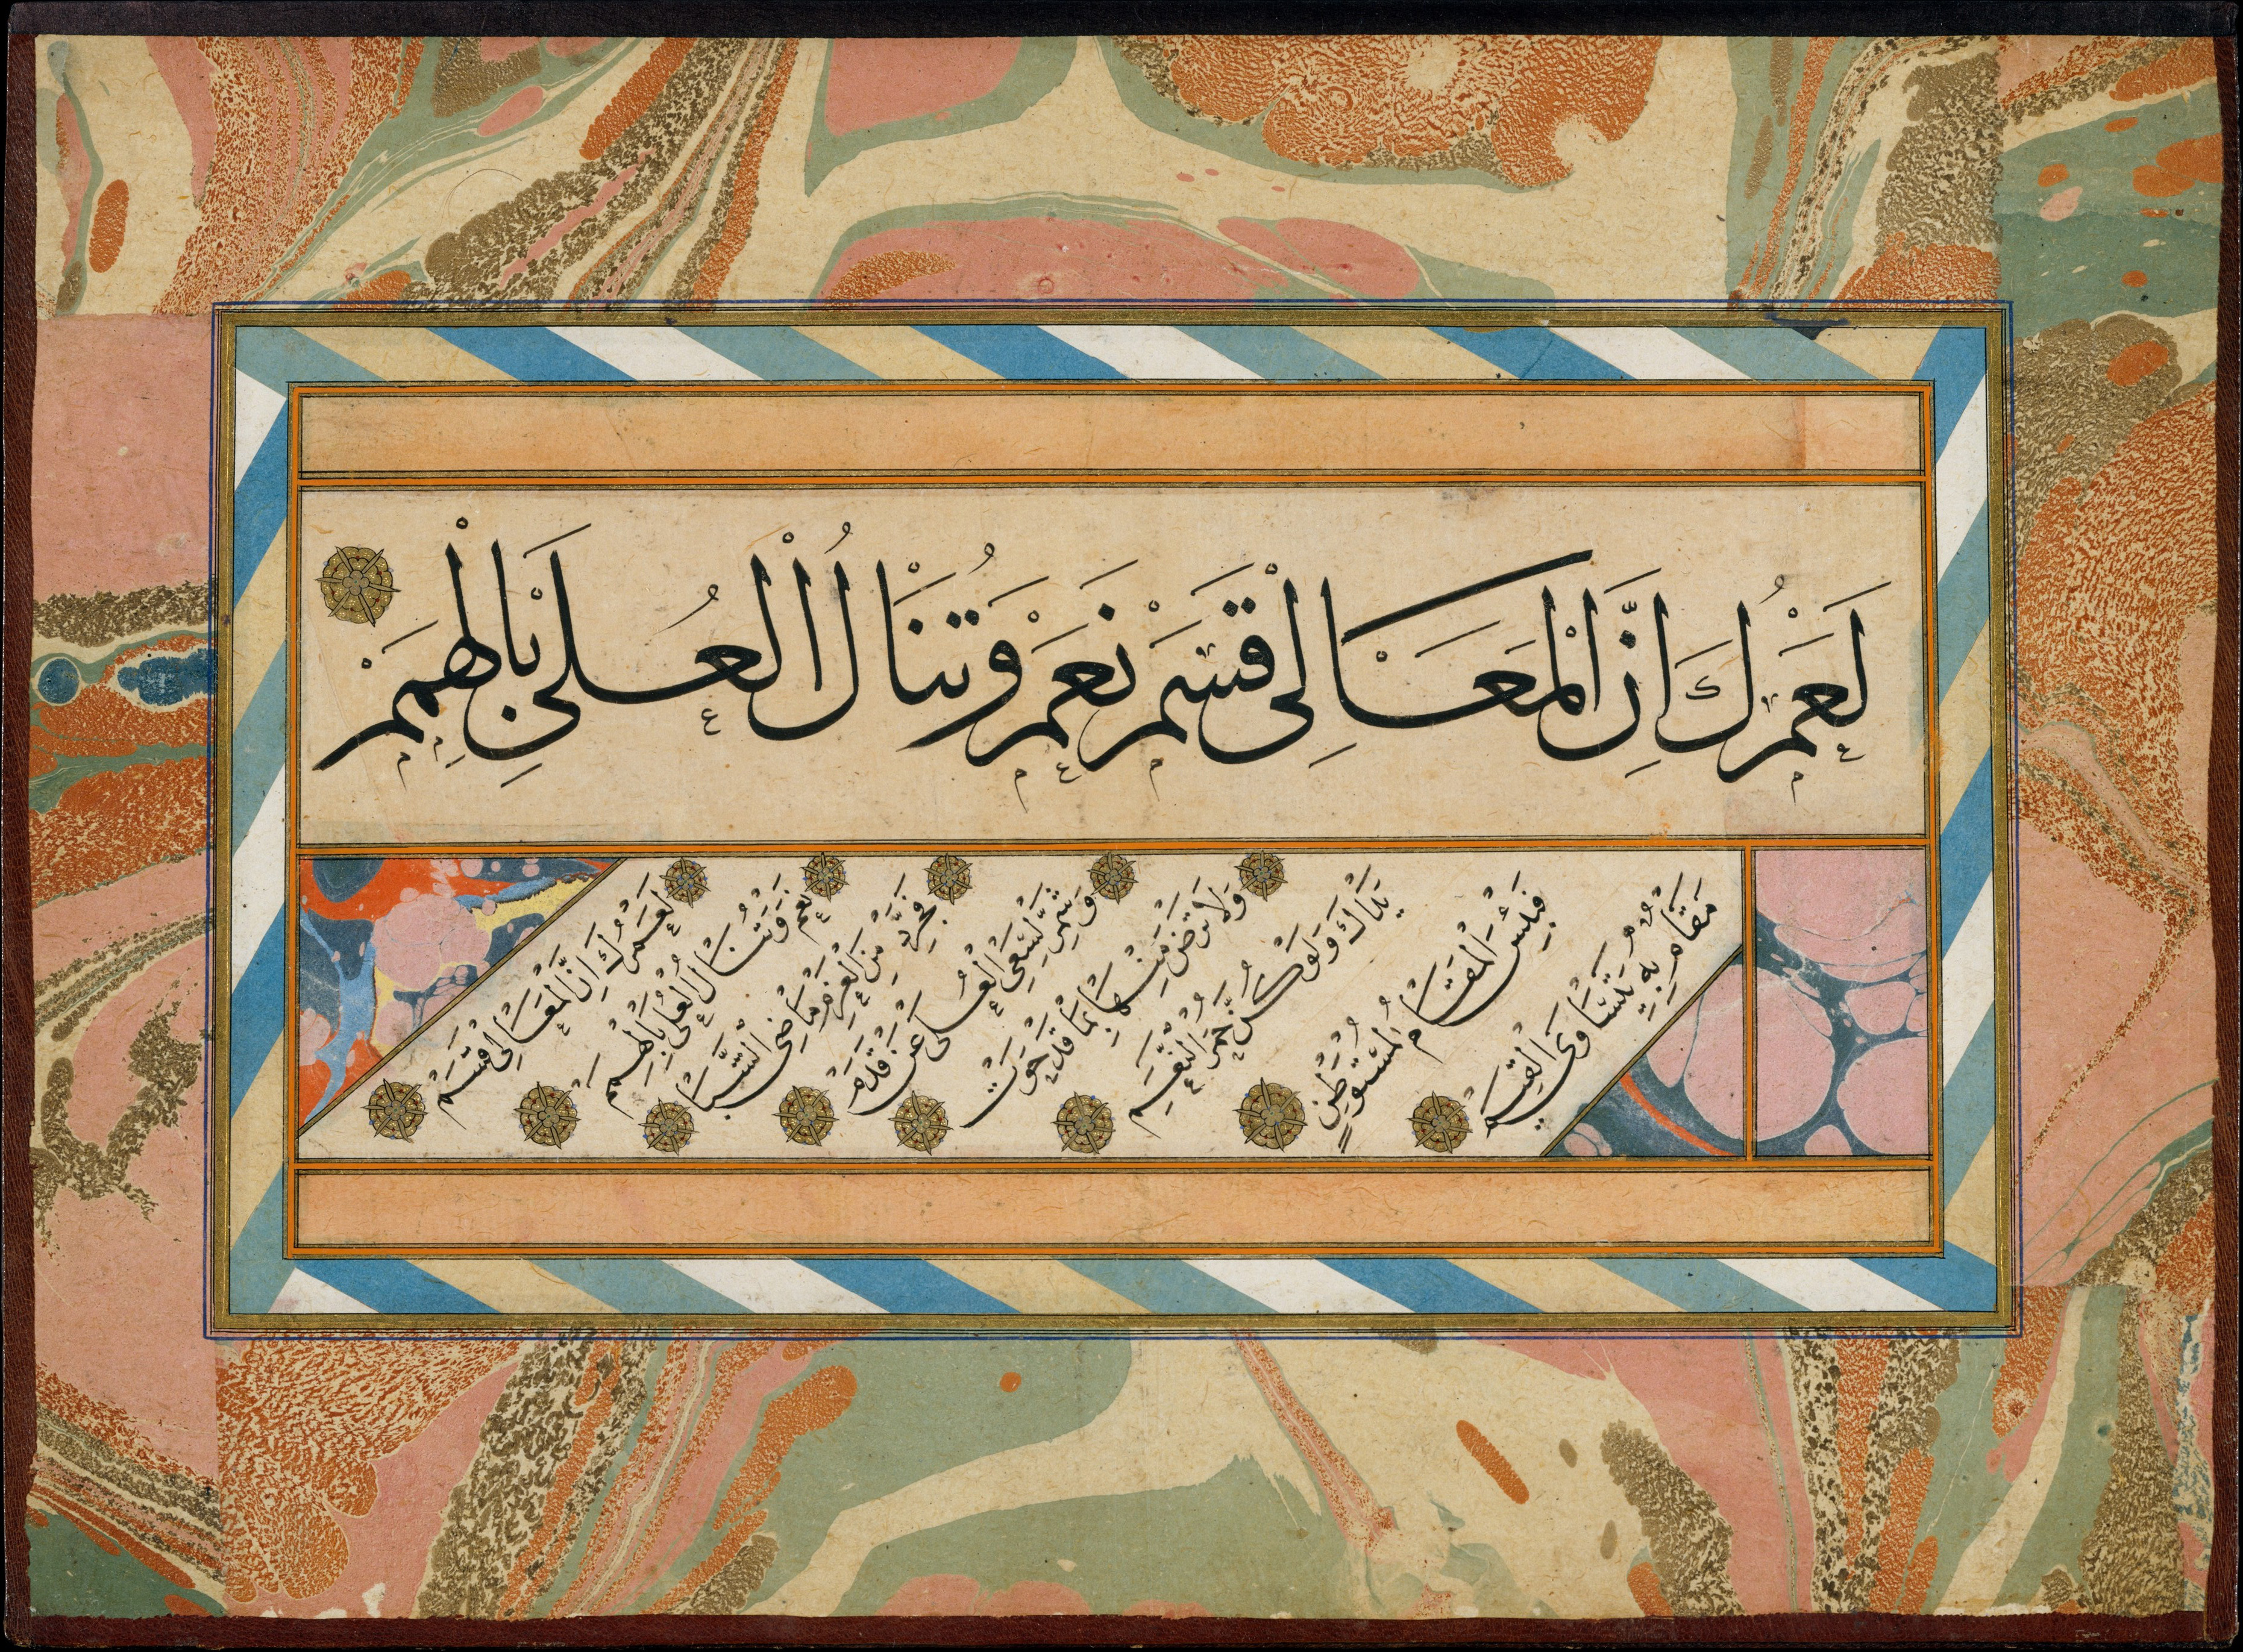 لَعَمْرُكَ اِنَّ الْمَعَالِى قِسَمْ نَعَمْ وَتُنَالُ الْعُلَى بِالْهِمَمْ
لَعَمْرُكَ اِنَّ الْمَعَالِى قِسَمْ
نَعَمْ وَتُنَالُ الْعُلَى بِالْهِمَمْ
فَجَرِّدْ مِنَ الْعَزْمِ مَاضِى الشَّبَا
وَشَمِّرْ لِسَعْىِ الْعُلَى عَنْ قَدَمْ
وَلَا تَرْضَ مِنْهَا بِمَا قَدْ حَوَتْ
يَدَاكَ وَلَوْ كُنَّ حُمْرَ النَّعَمْ
فَبِئْسَ الْمُقَامُ لِمُسْتَوْطِنٍ
مَقَامٌ بِهِ يَتَسَاوَى الْقِيَمْ